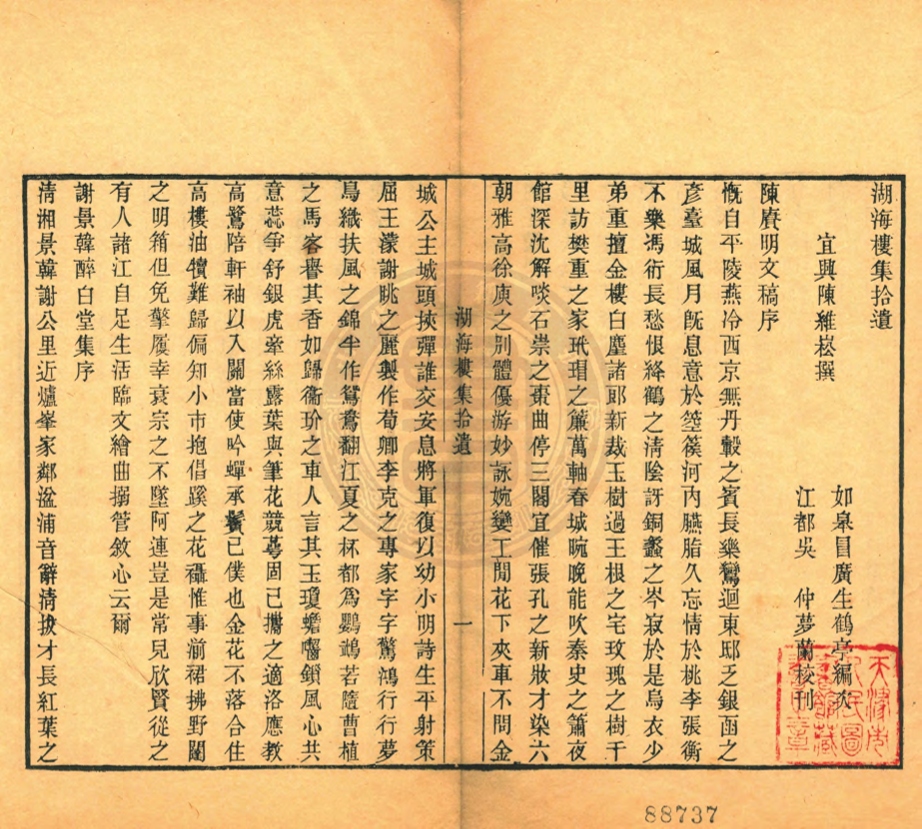 湖海樓集拾遺
宜興陳維崧撰
如皋冒廣生鶴亭編次
江都吳 仲夢蘭校刊
陳賡明文稿序
慨自平陵燕冷西京無丹轂之賓長樂鶯迴東邸乏銀函之
彥臺城風月旣息意於箜篌河內臙脂久忘情於桃李張衡
不樂馮衍長愁恨絳鶴之淸陰訝銅蠡之岑寂於是烏衣少
弟重擅金樓白麈諸郞新裁玉樹過王根之宅玫瑰之樹千
里訪樊重之家玳瑁之簾萬軸春城晼晚能吹秦史之簫夜
館深沈解啖石崇之棗曲停三閣宜催張孔之新妝才染六
朝雅高徐庾之別體優游妙詠婉孌工閒花下夾車不問金
湖海樓集拾遺 一
城公主城頭挾彈誰交安息將軍復以幼小明詩生平射策
屈王濛謝眺之麗製作荀卿李克之專家字字驚鴻行行夢
鳥織扶風之錦半作鴛鴦翻江夏之杯都爲鸚鵡若隨曹植
之馬客譽其香如歸衞玠之車人言其玉瓊蟾嚙鎖風心共
意蕊爭舒銀虎牽絲露葉與筆花競蕚固已攜之適洛應敎
高鷺陪軒袖以入關當使吟蟬承鬢已僕也金花不落合住
高樓油犢難歸偏知小市抱倡蹊之花襵惟事湔裙拂野閣
之明箱但免擎履幸衰宗之不墜阿連豈是常兒欣賢從之
有人諸江自足生活臨文繪曲搦管敘心云爾
謝景韓醉白堂集序
淸湘景韓謝公里近爐峯家鄰湓浦音辭淸拔才長紅葉之
天津市人民圖書館藏書之章
88737